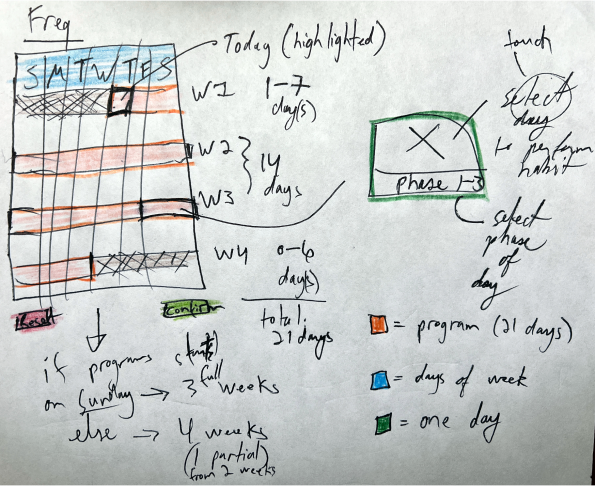 Freq
Today (highlighted)
S M T W T F S
W1 1-7 day(s)
W2
14 days
W3
W4 0-6 day(s)
total: 21 days
Reset
Confirm
if programs starts
on Sunday → 3 full weeks
else → 4 weeks
(1 partial)
from 2 weeks
touch
select
day
to perform
habit
X
phase 1-3
select
phase
of
day
= program (21 days)
= days of week
= one day